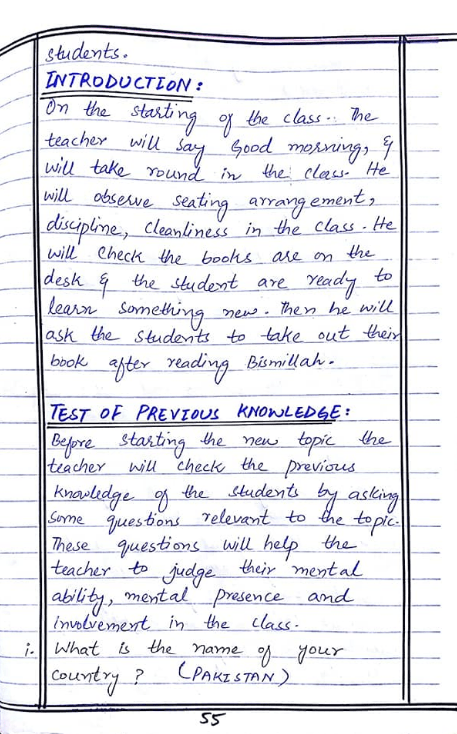 students.
INTRODUCTION:
On the starting of the class.. The
teacher will say Good morning, &
will take round in the class. He
will observe seating arrangement,
discipline, cleanliness in the class. He
will check the books are on the
desk & the student are ready to
learn something new. Then he will
ask the students to take out their
book after reading Bismillah.
TEST OF PREVIOUS KNOWLEDGE:
Before starting the new topic the
teacher will check the previous
knowledge of the students by asking
some questions relevant to the topic.
These questions will help the
teacher to judge their mental
ability, mental presence and
involvement in the class.
i. What is the name of your
country? (PAKISTAN)
55